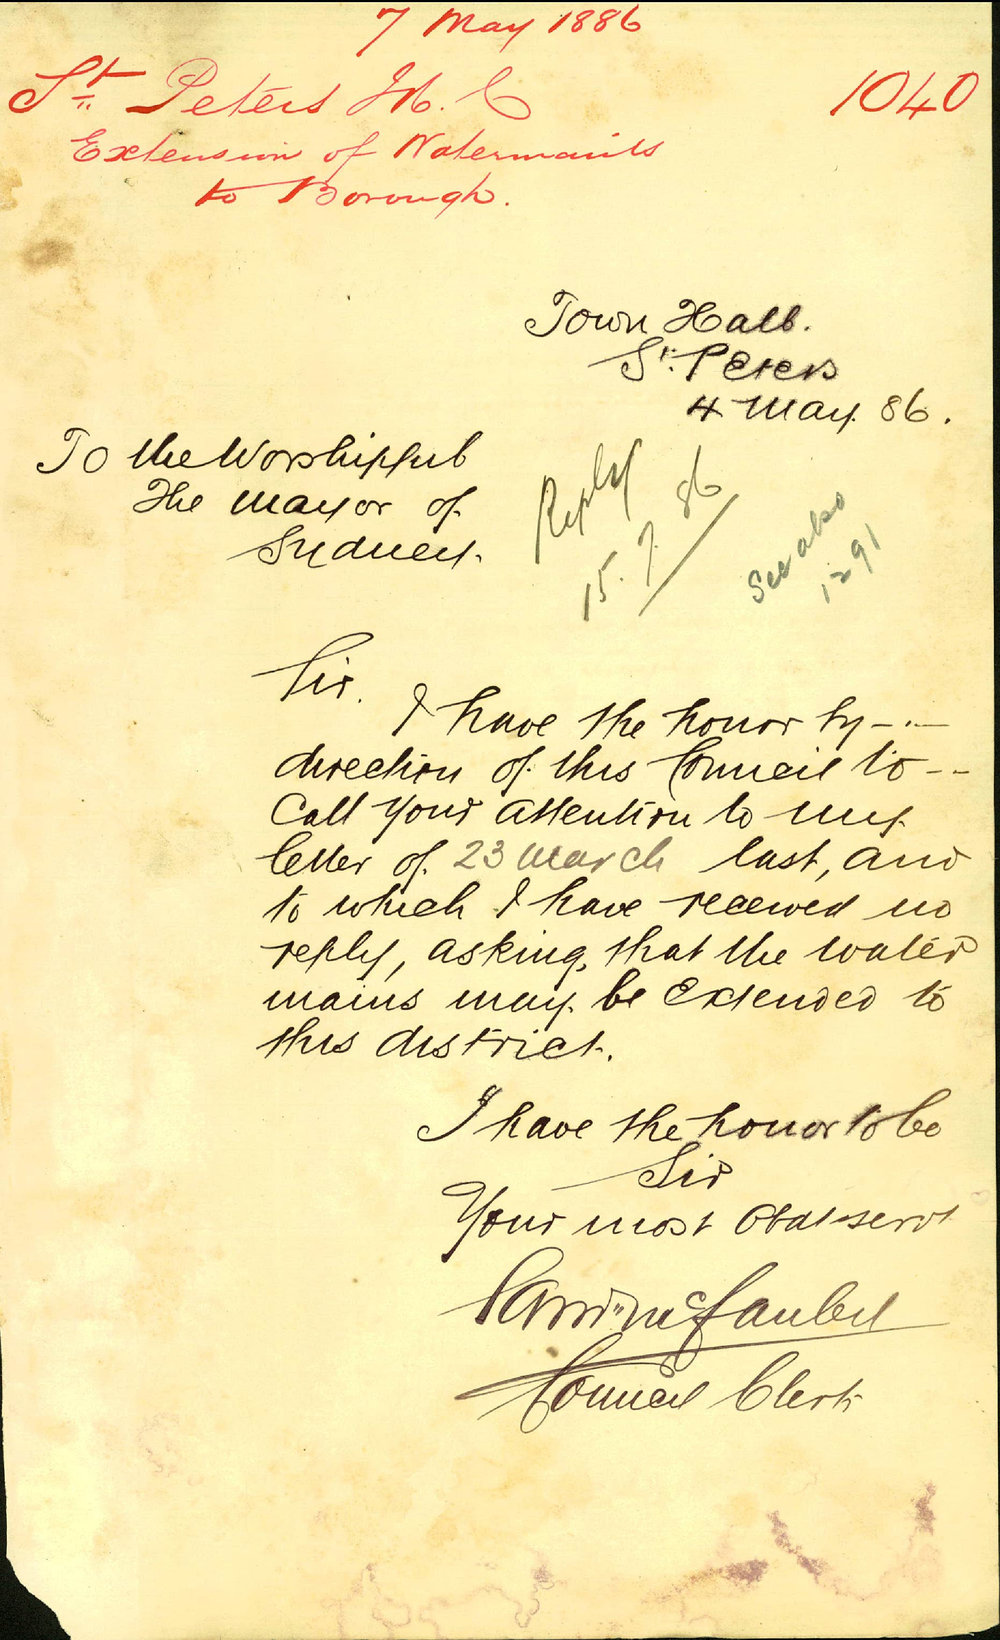 7 May 1886
St Peters M. C
1040
Extension of Watermains
to Borough.
Town Hall.
St. Peters
4 May. 86.
To the Worshipful
The Mayor of
Sydney.
Reply
15. 7. 86
See also
1291
Sir.
I have the honor by -.-
direction of this Council to --
Call your attention to my
letter of 23 March last, and
to which I have received no
reply, asking, that the water
mains may be extended to
this district.
I have the honor to be
Sir
Your most Obdt servt
Council Clerk